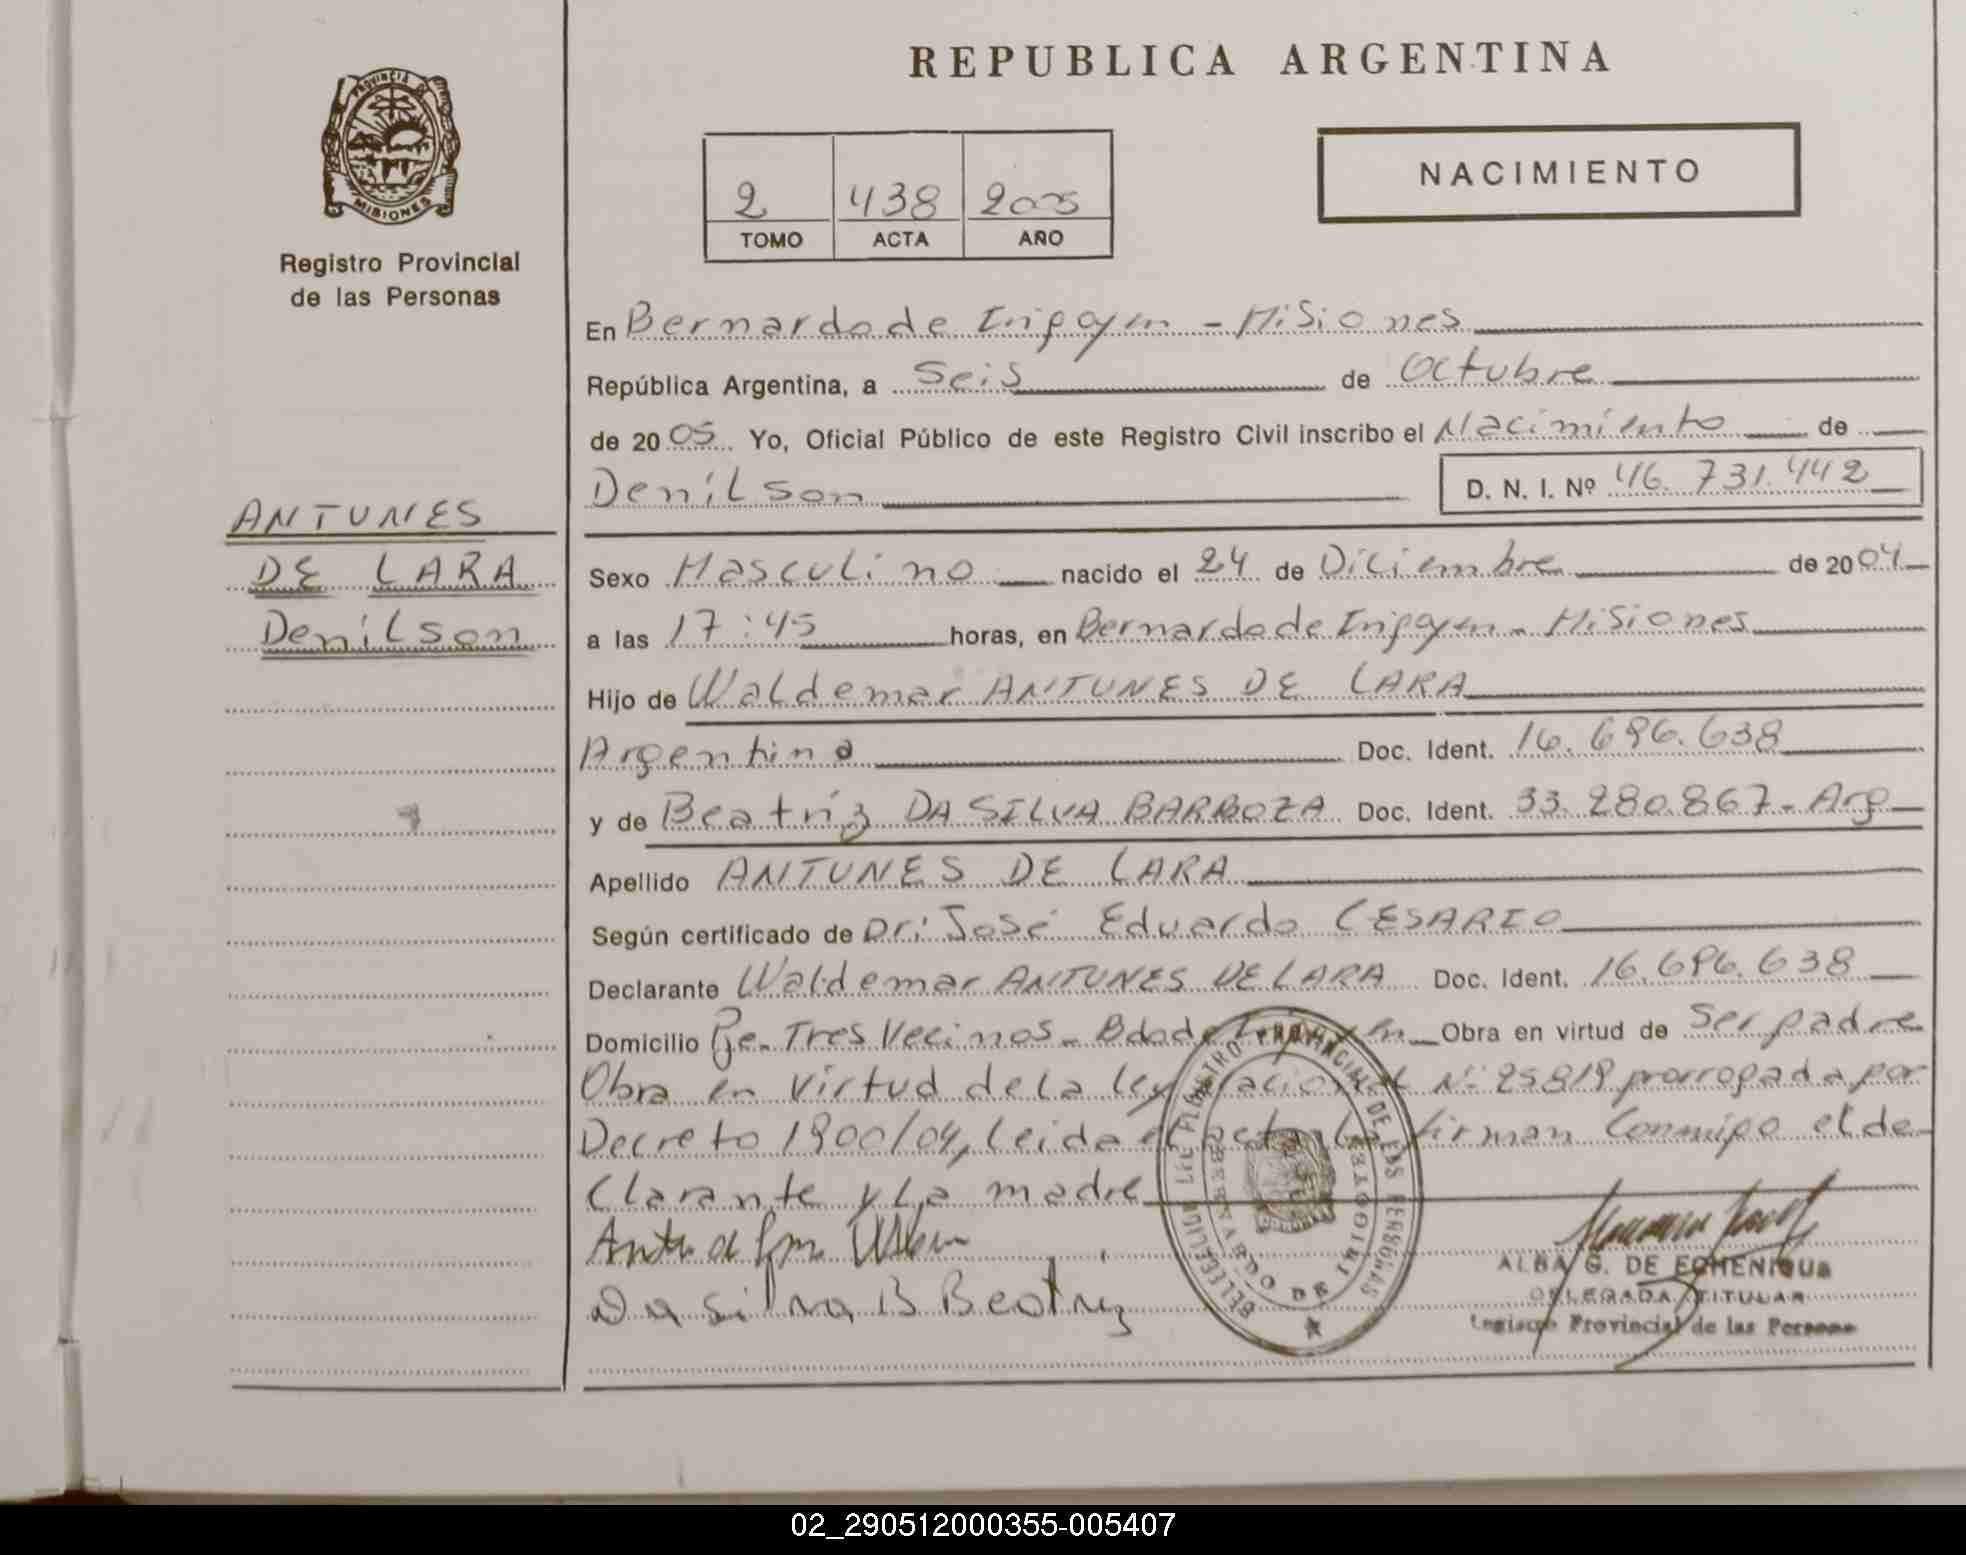 REPUBLICA ARGENTINA
PROVINCIA DE
MISIONES
Registro Provincial
de las Personas
2 438 2005
TOMO ACTA AÑO
NACIMIENTO
En Bernardo de Irigoyen - Misiones
República Argentina, a Seis de Octubre
de 2005 Yo, Oficial Público de este Registro Civil inscribo el Nacimiento de
Denilson D. N. I. Nº 46.731.442
ANTUNES
DE LARA
Denilson
Sexo Masculino nacido el 24 de Diciembre de 2004
a las 17:45 horas, en Bernardo de Irigoyen - Misiones
Hijo de Waldemar ANTUNES DE LARA
Argentino Doc. Ident. 16.696.638
y de Beatriz DA SILVA BARBOZA Doc. Ident. 33.280.867 - Arg
Apellido ANTUNES DE LARA
Según certificado de Dr: José Eduardo CESARIO
Declarante Waldemar ANTUNES DE LARA Doc. Ident. 16.696.638
Domicilio Pje. Tres Vecinos - Bdo de Irigoyen Obra en virtud de Ser padre
Obra en virtud de la ley nacional Nº 25819 prorrogada por
Decreto 1900/04, leida el acta la firman Conmigo el de
clarante y La madre
Da silva B Beatriz
REGISTRO PROVINCIAL DE LAS PERSONAS
ALBA G. DE ECHENIQUE
DELEGADA TITULAR
Registro Provincial de las Personas
02_290512000355-005407